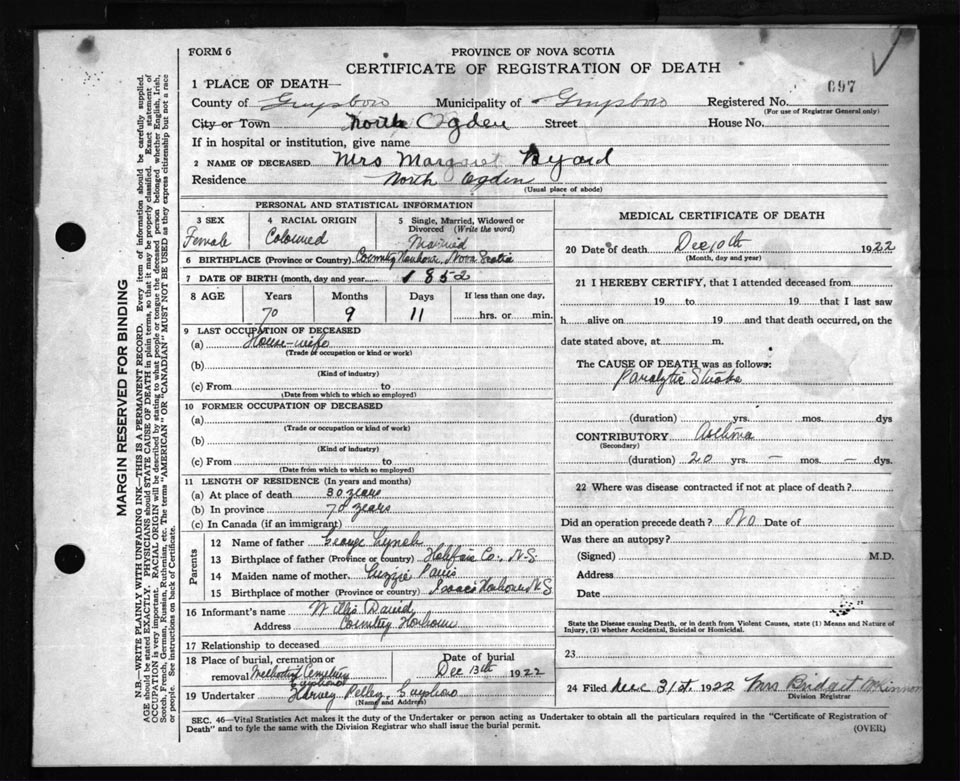 FORM 6
PROVINCE OF NOVA SCOTIA
CERTIFICATE OF REGISTRATION OF DEATH
697
1 PLACE OF DEATH—
County of Guysboro Municipality of Guysboro Registered No.
(For use of Registrar General only)
City or Town North Ogden Street House No.
If in hospital or institution, give name
2 NAME OF DECEASED Mrs Margaret Byard
Residence North Ogden
(Usual place of abode)
PERSONAL AND STATISTICAL INFORMATION
3 SEX 4 RACIAL ORIGIN 5 Single, Married, Widowed or Divorced (Write the word)
Female Coloured Married
6 BIRTHPLACE (Province or Country) Country Harbour, Nova Scotia
7 DATE OF BIRTH (month, day and year) 1852
8 AGE Years Months Days If less than one day,
70 9 11 hrs. or min.
9 LAST OCCUPATION OF DECEASED
(a) House-wife
(Trade or occupation or kind or work)
(b)
(Kind of industry)
(c) From to
(Date from which to which so employed)
10 FORMER OCCUPATION OF DECEASED
(a)
(Trade or occupation or kind of work)
(b)
(Kind of industry)
(c) From to
(Date from which to which so employed)
11 LENGTH OF RESIDENCE (In years and months)
(a) At place of death 30 years
(b) In province 70 years
(c) In Canada (if an immigrant)
Parents
12 Name of father George Lynch
13 Birthplace of father (Province or country) Halifax Co., N.S
14 Maiden name of mother Luzzie
15 Birthplace of mother (Province or country) Isaacs Harbour N.S
16 Informant's name Willis David
Address Country Harbour
17 Relationship to deceased
18 Place of burial, cremation or removal Methodist Cemetery Date of burial
Dec 13th 1922
19 Undertaker Harvey
(Name and Address)
MEDICAL CERTIFICATE OF DEATH
20 Date of death Dec 10th 1922
(Month, day and year)
21 I HEREBY CERTIFY, that I attended deceased from
19 to 19 that I last saw
h alive on 19 and that death occurred, on the
date stated above, at m.
The CAUSE OF DEATH was as follows:
Paralytic Stroke
(duration) yrs. mos. dys
CONTRIBUTORY Asthma
(Secondary)
(duration) 20 yrs. — mos. — dys.
22 Where was disease contracted if not at place of death?
Did an operation precede death? No Date of
Was there an autopsy?
(Signed) M.D.
Address
Date
State the Disease causing Death, or in death from Violent Causes, state (1) Means and Nature of
Injury, (2) whether Accidental, Suicidal or Homicidal.
23
24 Filed Dec 31st. 1922 Mrs Bridget McKinnon
Division Registrar
SEC. 46—Vital Statistics Act makes it the duty of the Undertaker or person acting as Undertaker to obtain all the particulars required in the "Certificate of Registration of
Death" and to fyle the same with the Division Registrar who shall issue the burial permit.
(OVER)
MARGIN RESERVED FOR BINDING
N.B.—WRITE PLAINLY WITH UNFADING INK—THIS IS A PERMANENT RECORD. Every item of information should be carefully supplied.
AGE should be stated EXACTLY. PHYSICIANS should STATE CAUSE OF DEATH in plain terms, so that it may be properly classified. Exact statement of
OCCUPATION is very important. RACIAL ORIGIN will be described by stating to what people or tongue the deceased person belonged whether English, Irish,
Scotch, French, German, Russian, Ruthenian, etc. The terms "AMERICAN" OR "CANADIAN" MUST NOT BE USED as they express citizenship but not a race
or people. See instructions on back of Certificate.